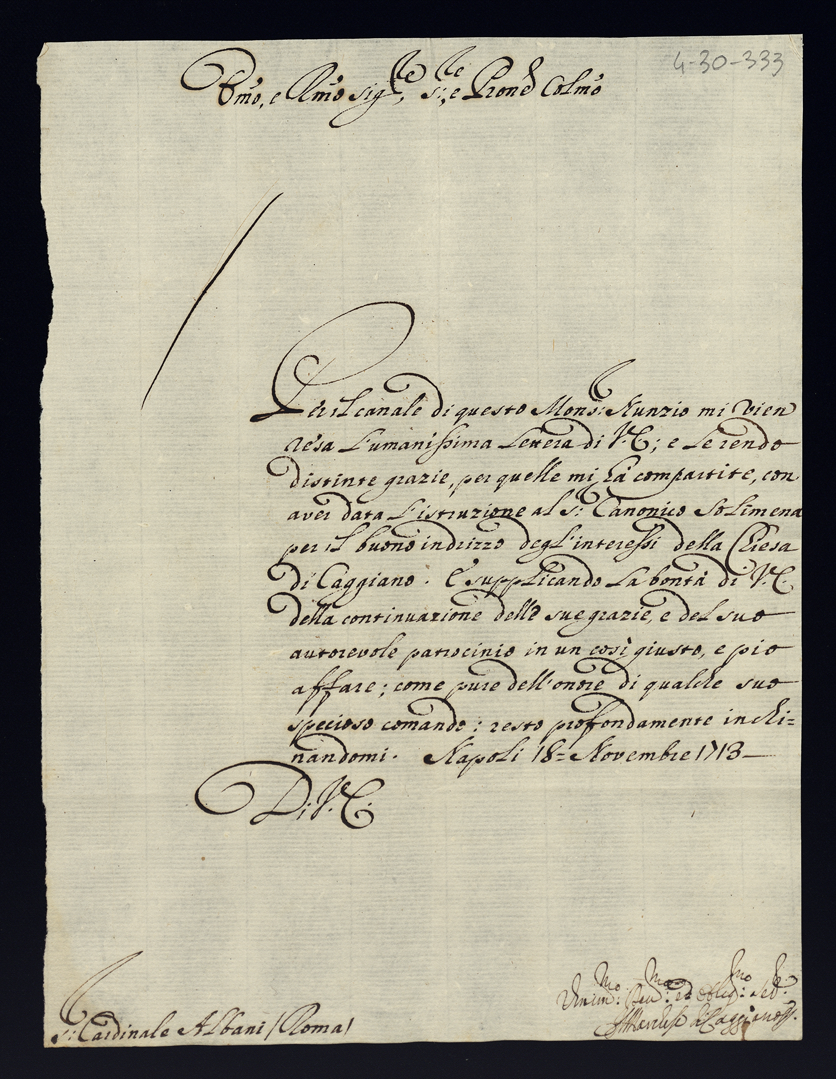 4-30-333
Emo, e Rmo sigre, sr:, e Prone Colmo
Per il canale di questo Monsr: Nunzio mi vien
resa l'umanissima lettera di V.E.; e le rendo
distinte grazie, per quelle mi hà compartite, con
aver data l'istruzione al sr: Canonico Solimena
per il buono indrizzo degl'interessi della Chiesa
di Caggiano. E supplicando la bontà di V.E.
della continuazione delle sue grazie, e del suo
autorevole patrocinio in un così giusto, e pio
affare; come pure dell'onore di qualche suo
specioso comando; resto profondamente inchi=
nandomi. Napoli 18= Novembre 1713
Di V.E.
sr: Cardinale Albani / Roma /
Umilmo: ed Obligmo:
di Caggiano